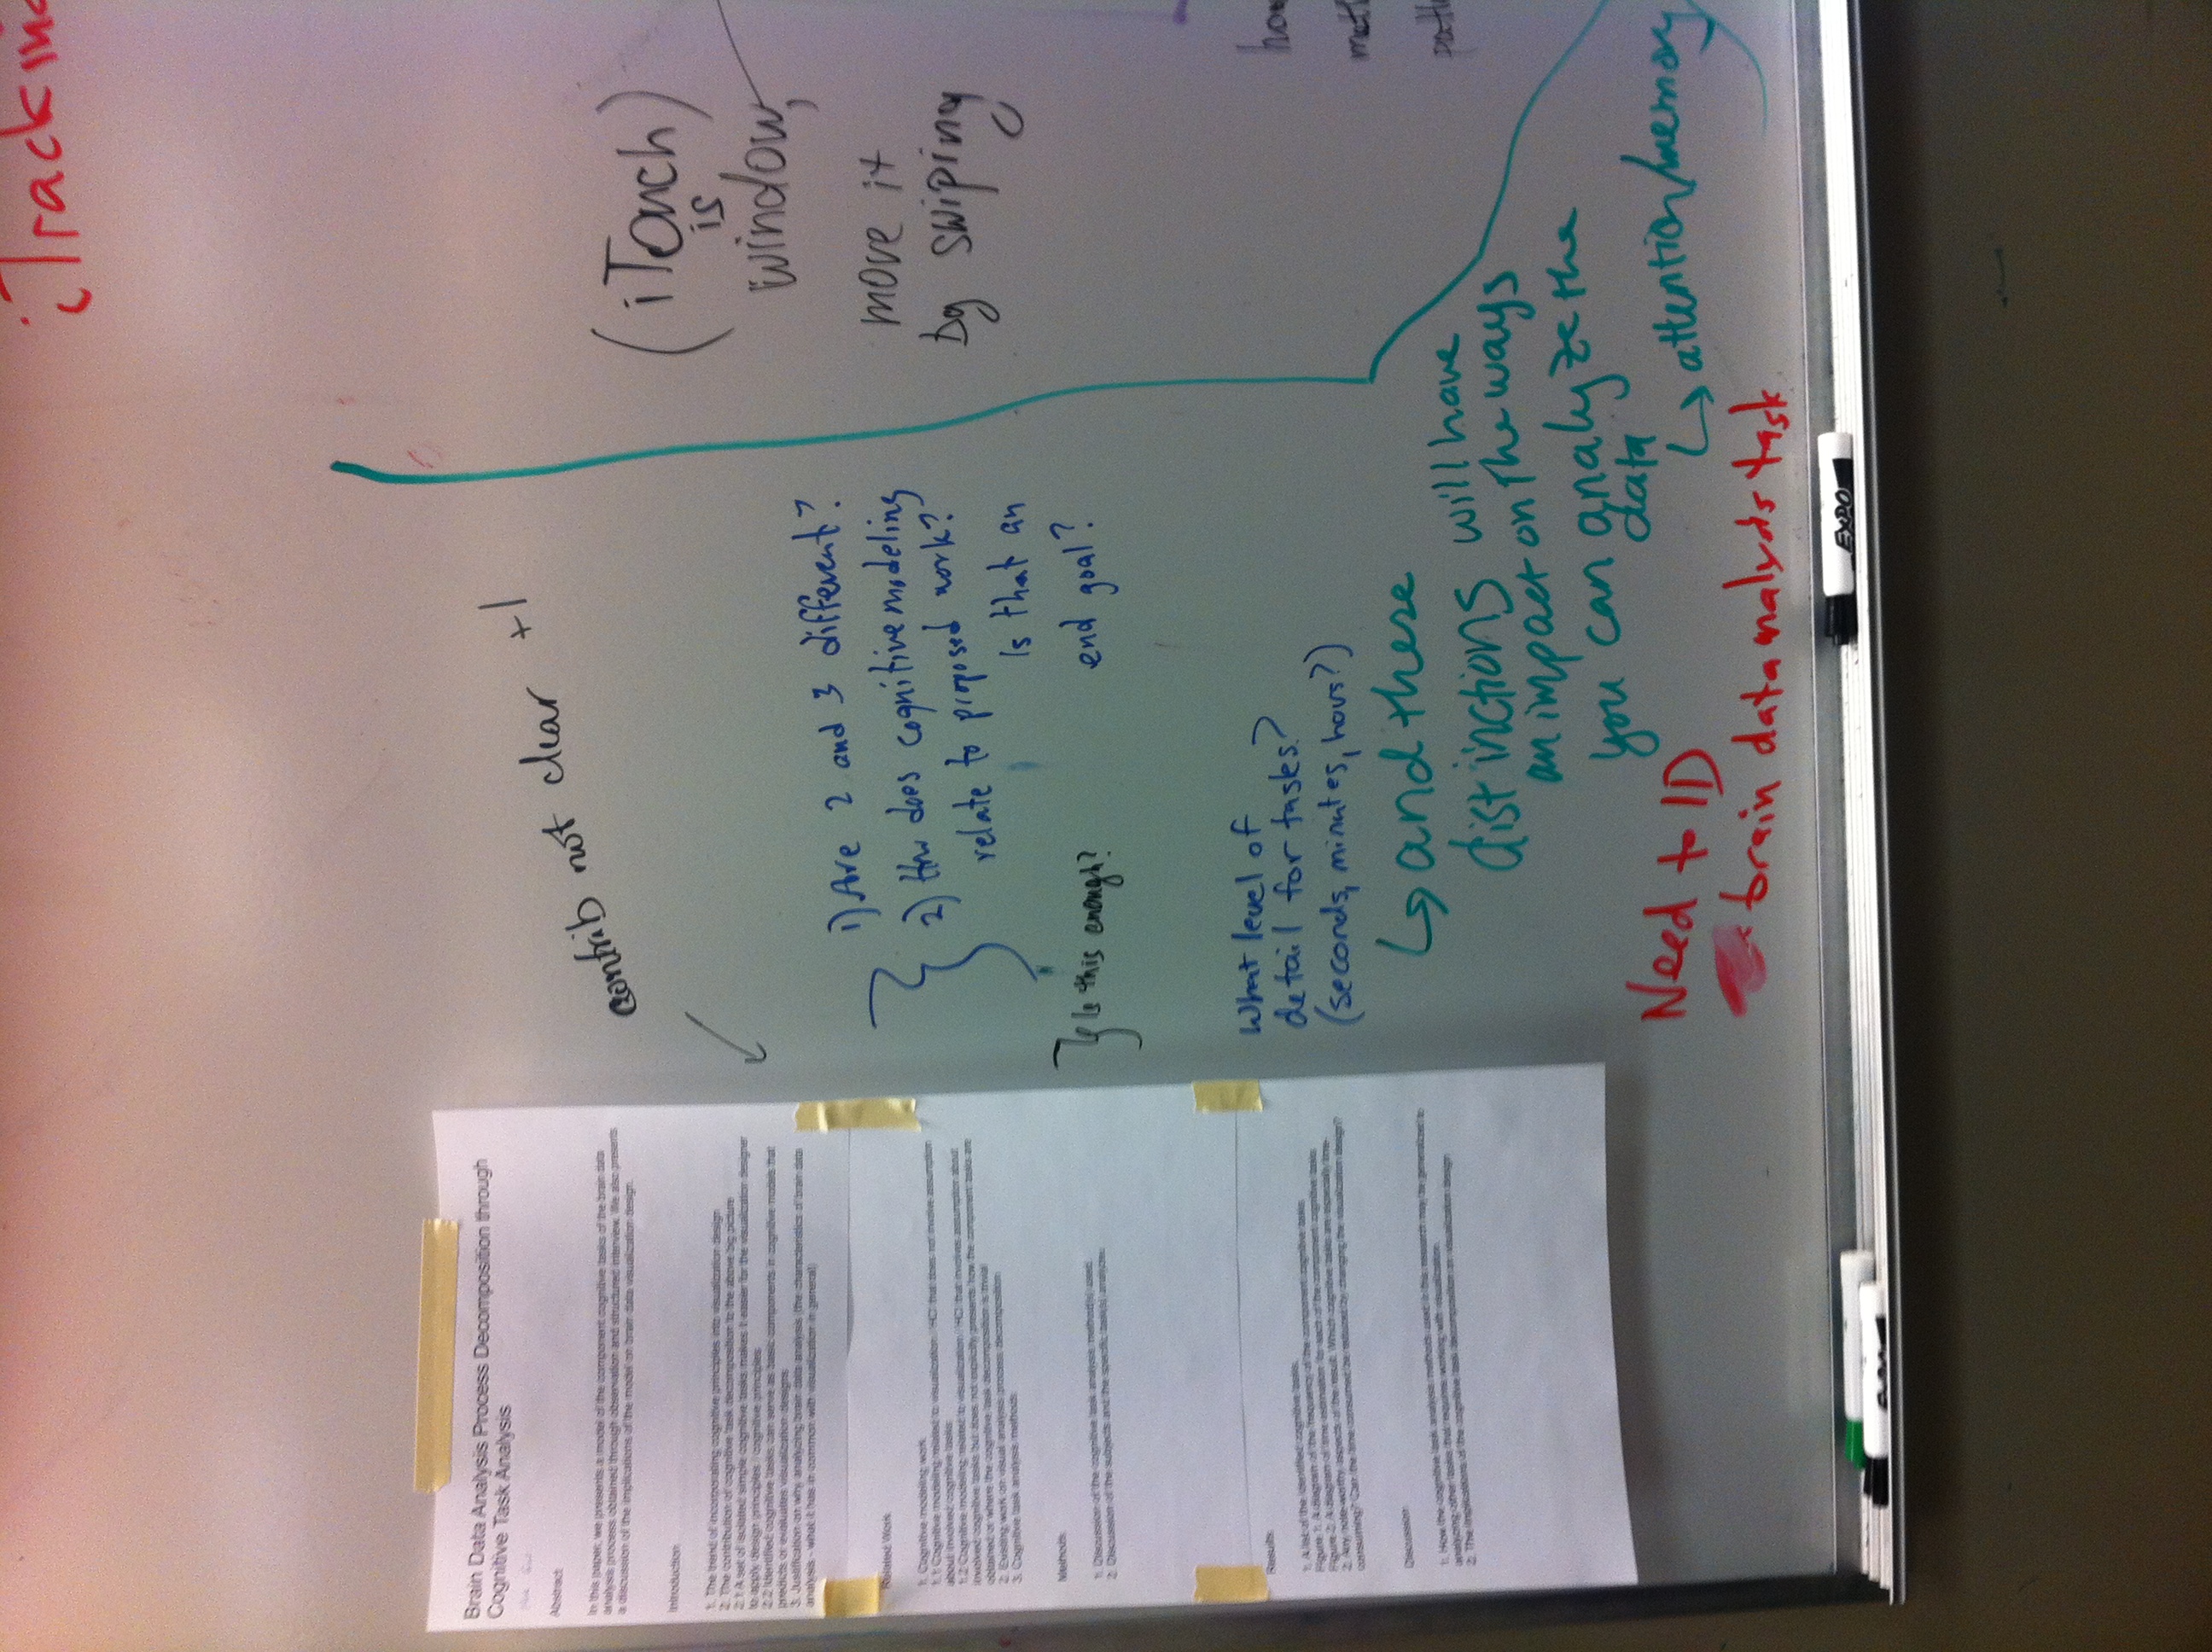 Brain Data Analysis Process Decomposition through
Cognitive Task Analysis
Abstract
In this paper, we presents a model of the component cognitive tasks of the brain data
analysis process obtained through observation and structured interview. We also presents
a discussion of the implications of the model on brain data visualization design.
Introduction
1. The trend of incorporating cognitive principles into visualization design
2. The contribution of cognitive task decomposition to the above big picture
2.1 A set of isolated simple cognitive tasks makes it easier for the visualization designer
to apply design principles / cognitive principles
2.2 Identified cognitive tasks can serve as basic components in cognitive models that
predicts or evaluates visualization designs
3. Justification on why analyzing brain data analysis (the characteristics of brain data
analysis - what it has in common with visualization in general)
Related Work
1. Cognitive modeling work
1.1 Cognitive modeling related to visualization / HCI that does not involve assumption
about involved cognitive tasks
1.2 Cognitive modeling related to visualization / HCI that involves assumption about
involved cognitive tasks but does not explicitly presents how the component tasks are
obtained or where the cognitive task decomposition is trivial
2. Existing work on visual analysis process decomposition
3. Cognitive task analysis methods
Methods
1. Discussion of the cognitive task analysis method(s) used.
2. Discussion of the subjects and the specific task(s) analyze.
Results
1. A list of the identified cognitive tasks.
Figure 1: A diagram of the frequency of the component cognitive task.
Figure 2: A diagram of time estimation for each of the component cognitive task.
2. Any note-worthy aspects of the result. Which cognitive tasks are especially time-
consuming? Can the time consumed be reduced by changing the visualization design?
Discussion
1. How the cognitive task analysis methods used in this research may be generalized to
analyzing other tasks that requires working with visualization.
2. The implications of the cognitive task decomposition on visualization design
contrib not clear +1
1) Are 2 and 3 different?
2) How does cognitive modeling
relate to proposed work?
Is that an
end goal?
Is this enough?
What level of
detail for tasks?
(seconds, minutes, hours?)
↳ and these
distinctions will have
an impact on the ways
you can analyze the
data
↳ attention/memory
Need to ID
brain data analysis task
iTrackin
(iTouch)
is
window,
move it
by swiping
EXPO